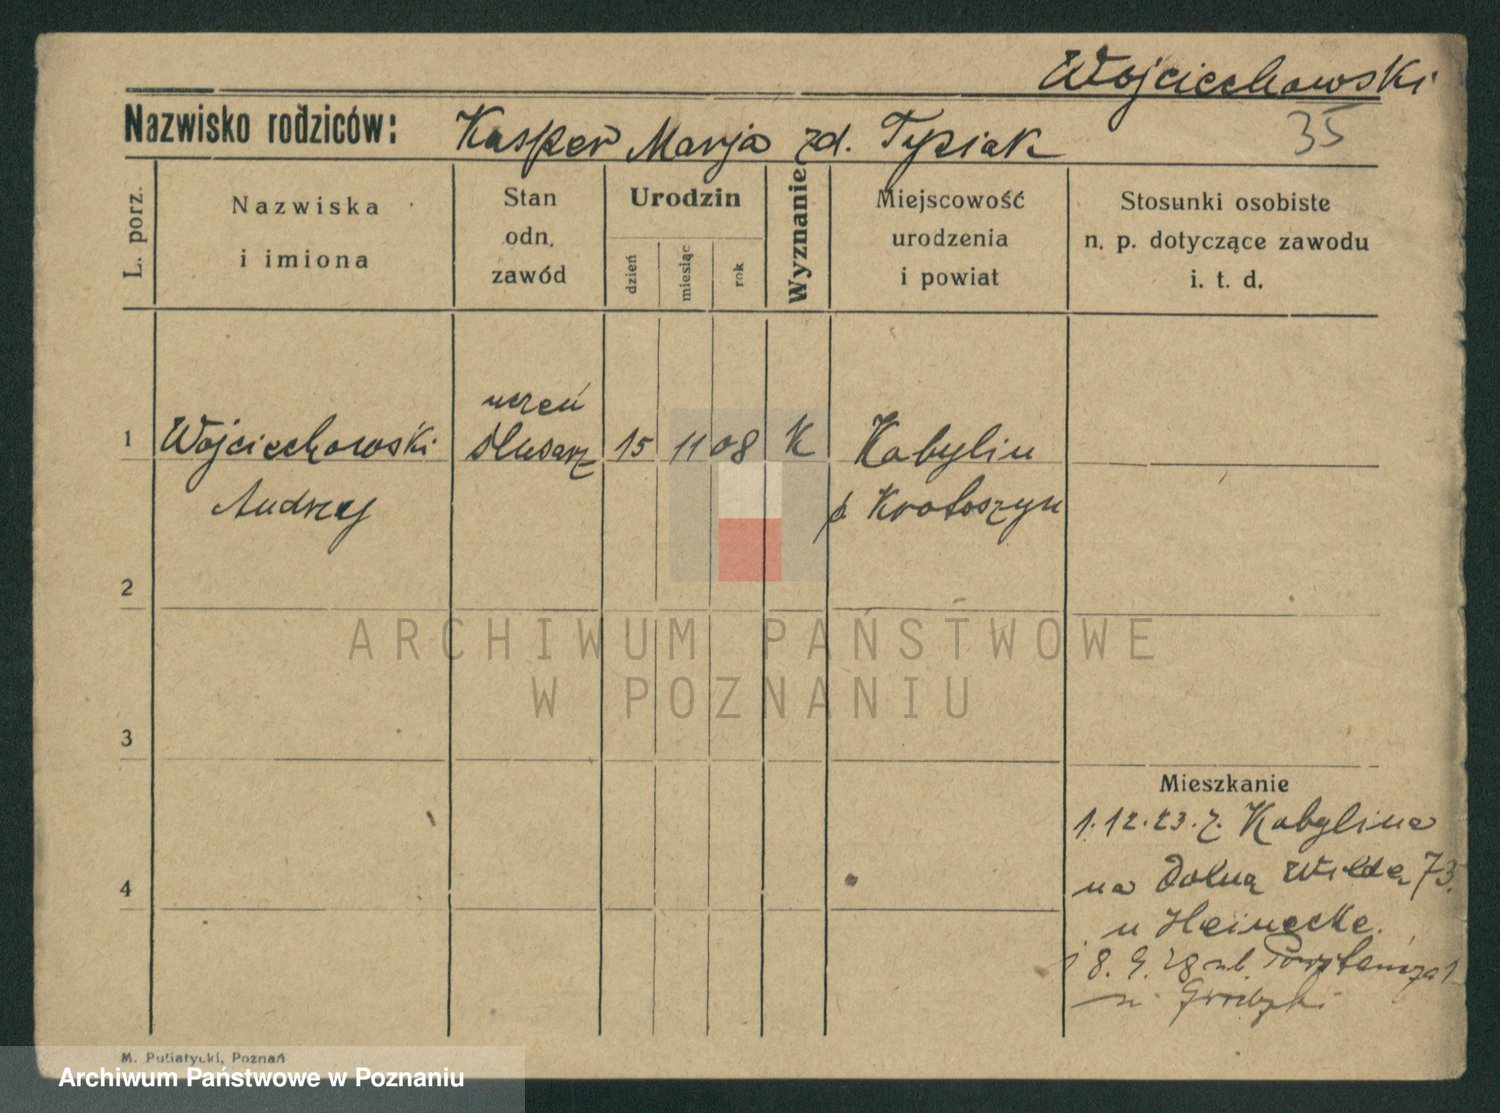 Wojciechowski
Nazwisko rodziców: Kasper Marja zd. Tyziak
35
L. porz.
Nazwiska
i imiona
Stan
odn.
zawód
Urodzin
dzień
miesiąc
rok
Wyznanie
Miejscowość
urodzenia
i powiat
Stosunki osobiste
n. p. dotyczące zawodu
i. t. d.
uczeń
1 Wojciechowski ślusarz 15 11 08 K Kobylin
Andrzej p Krotoszyn
2
ARCHIWUM PAŃSTWOWE
W POZNANIU
3
Mieszkanie
1.12.23. z. Kobylina
na Dolną Wildą 73.
4
u Heinecke.
8. 9. 28 ul.
u
M. Putiatycki, Poznań
Archiwum Państwowe w Poznaniu